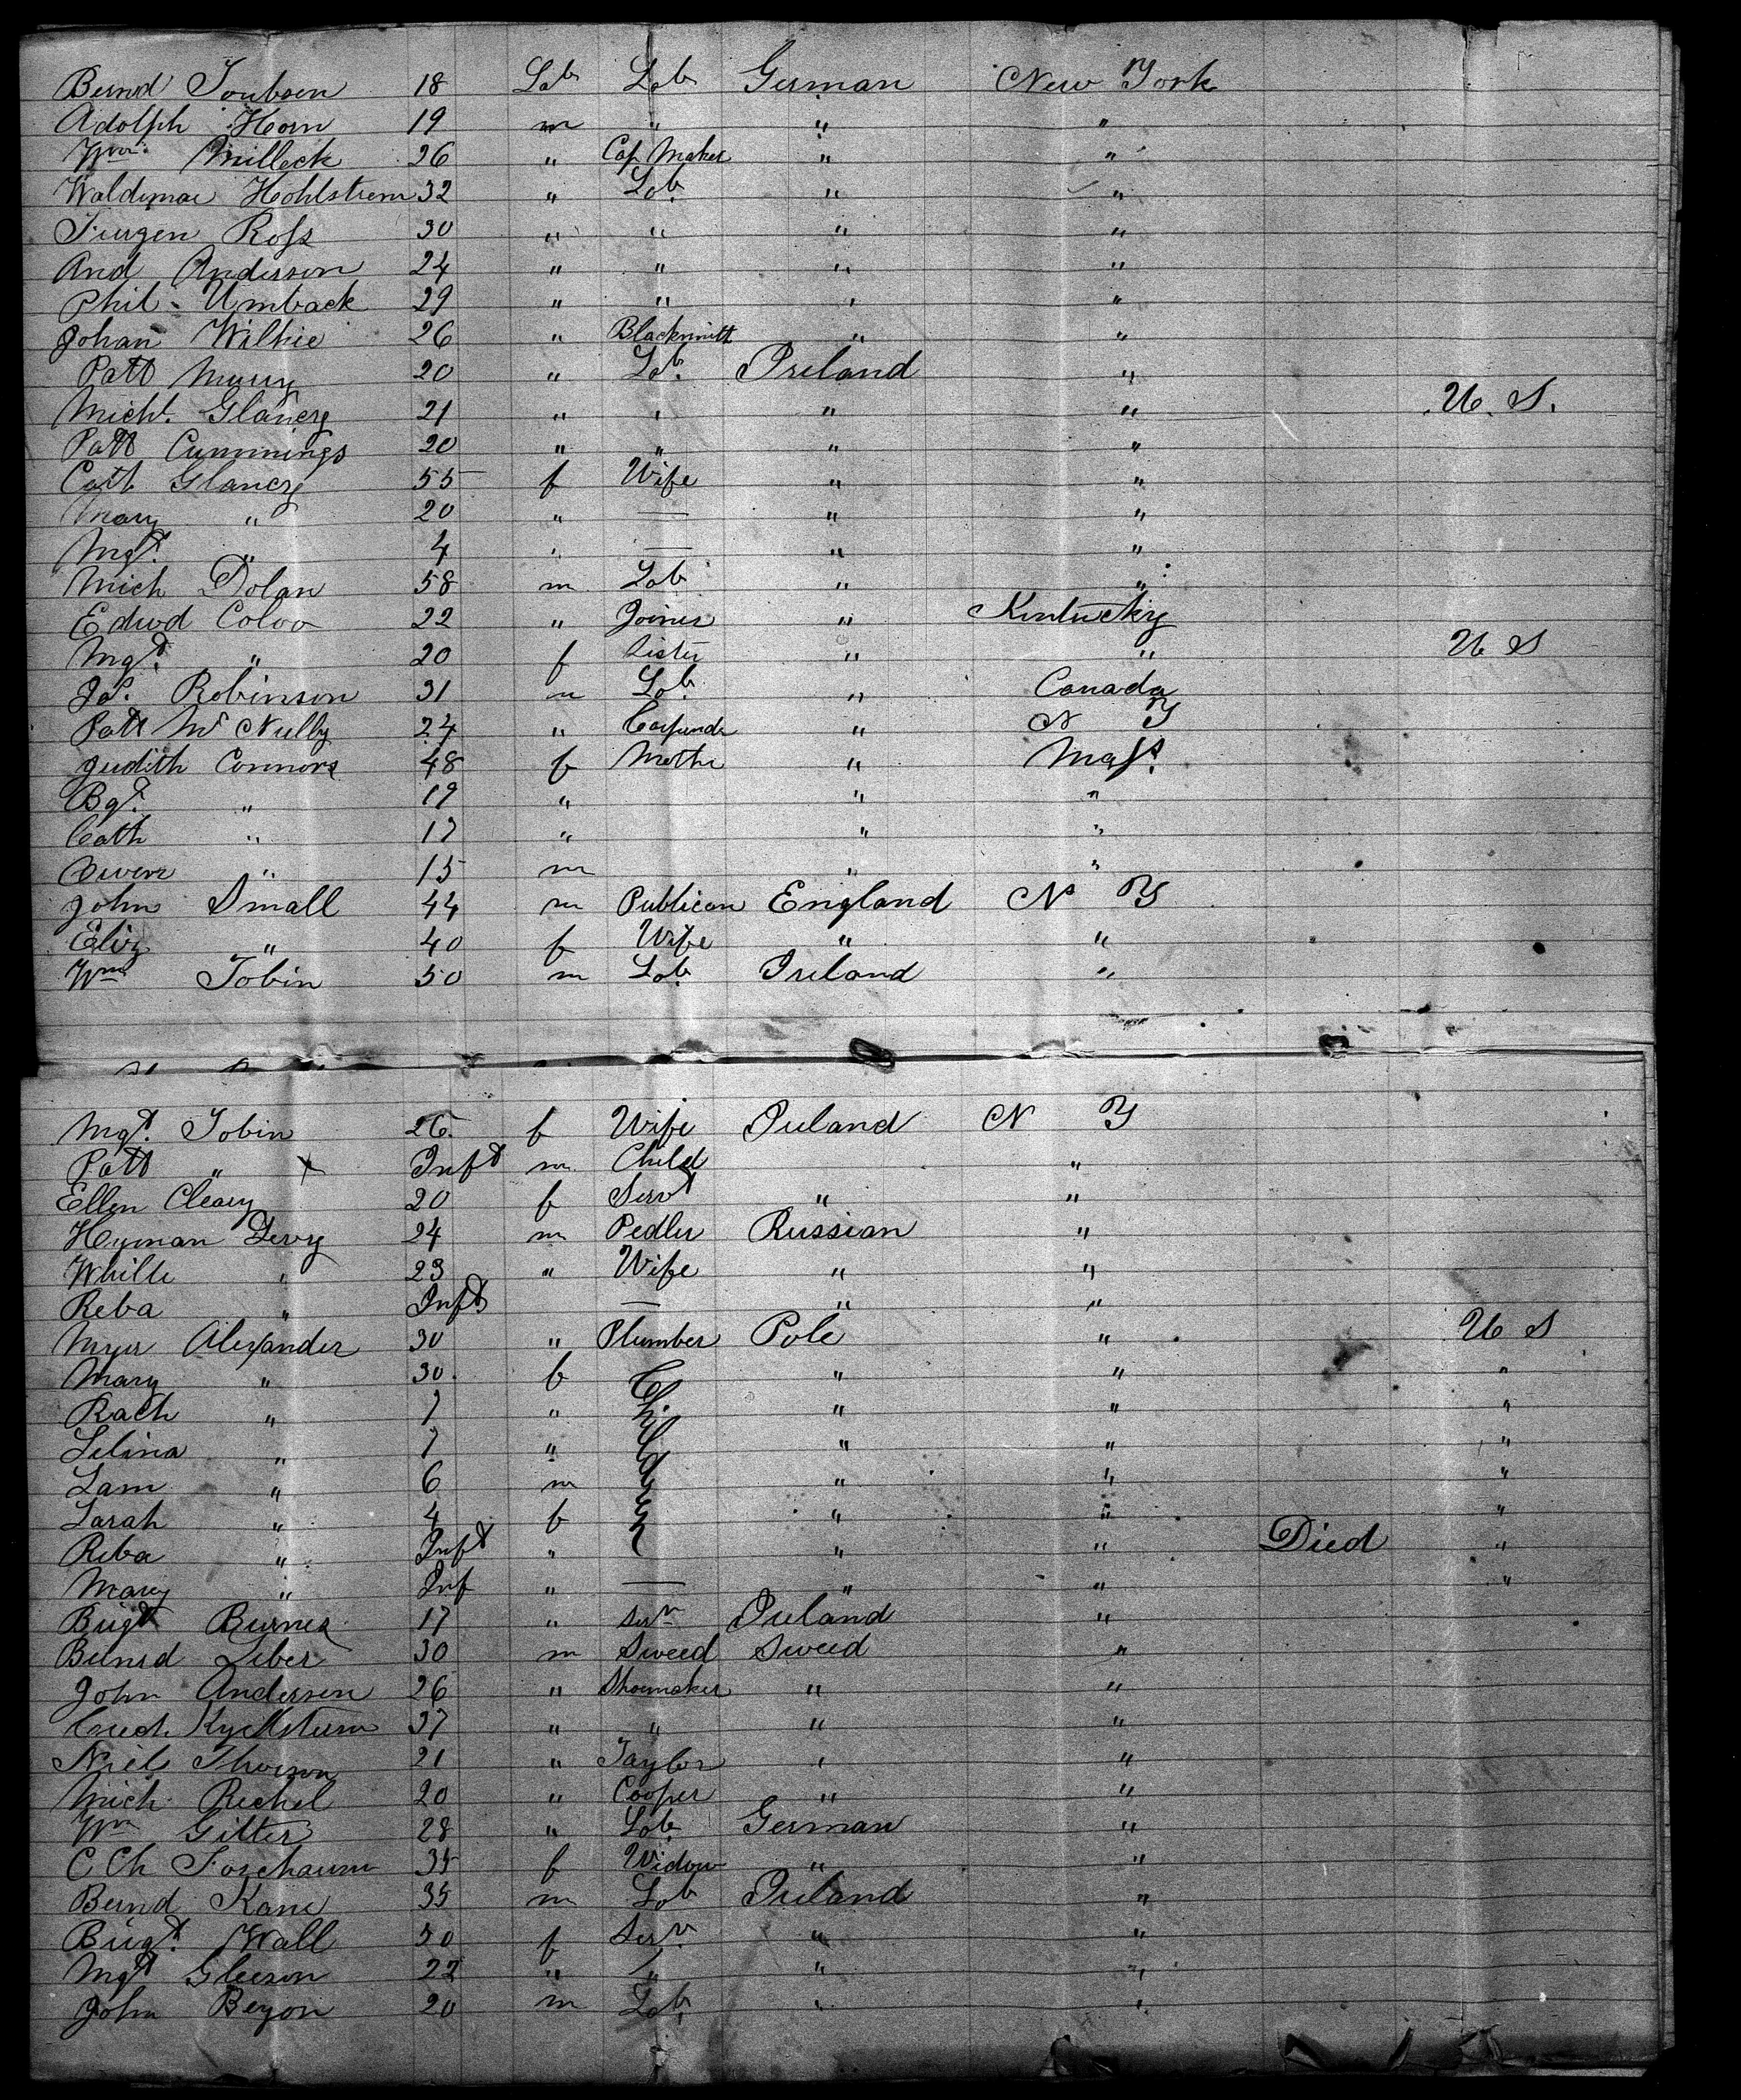 Bernd Toubsen 18 Lab Lab German New York
Adolph Horn 19 m " " "
Wm. Milleck 26 " Cap Maker " "
Waldemar Hohlstrem 32 " Lab. " "
Jurgen Ross 30 " " " "
And Anderson 24 " " " "
Phil Umback 29 " " " "
Johan Wilkie 26 " Blacksmith " "
Patt Murry 20 " Lab. Ireland "
Michl. Glancy 21 " " " " U. S.
Patt Cummings 20 " " " "
Cath Glancy 55 f Wife " "
Mary " 20 " — " "
Mgt. " 4 " — " "
Mich Dolan 58 m Lab " "
Edwd Coloo 22 " Joiner " Kentucky
Mgt. " 20 f Sister " " U S
Js. Robinson 31 m Lab. " Canada
Patt McNulty 24 " Carpender " N Y
Judith Connors 48 f Mother " Mass.
Bgt. " 19 " " "
Cath " 17 " " "
Owen " 15 m " "
John Small 44 m Publican England N Y
Eliz " 40 f Wife " "
Wm Tobin 50 m Lab. Ireland "
Mgt. Tobin 26. f Wife Ireland N Y
Patt " + Inft m Child "
Ellen Cleary 20 f Servt " "
Hyman Levy 24 m Pedler Russian "
Whille " 23 " Wife " "
Reba " Inft — " "
Myer Alexander 30 " Plumber Pole " U S
Mary " 30. f Children " " "
Rach " 7 " " " "
Selina " 7 " " " "
Sam " 6 m " " "
Sarah " 4 f " " "
Reba " Inft " " " Died "
Mary " Inf " — " " "
Brigt Burnes 17 " Servn Ireland "
Bernrd Liber 30 m Sweed Sweed "
John Andersen 26 " Shoemaker " "
37 " " " "
Niels Thorson 21 " Taylor " "
Mich Rechel 20 " Cooper " "
Wm Gitter 28 " Lab. German "
C Ch 35 f Widow " "
Bernd Kane 35 m Lab Ireland "
Brigt. Wall 30 f Serv. " "
Mgt Gleeson 22 " " " "
John Beyon 20 m Lab. " "